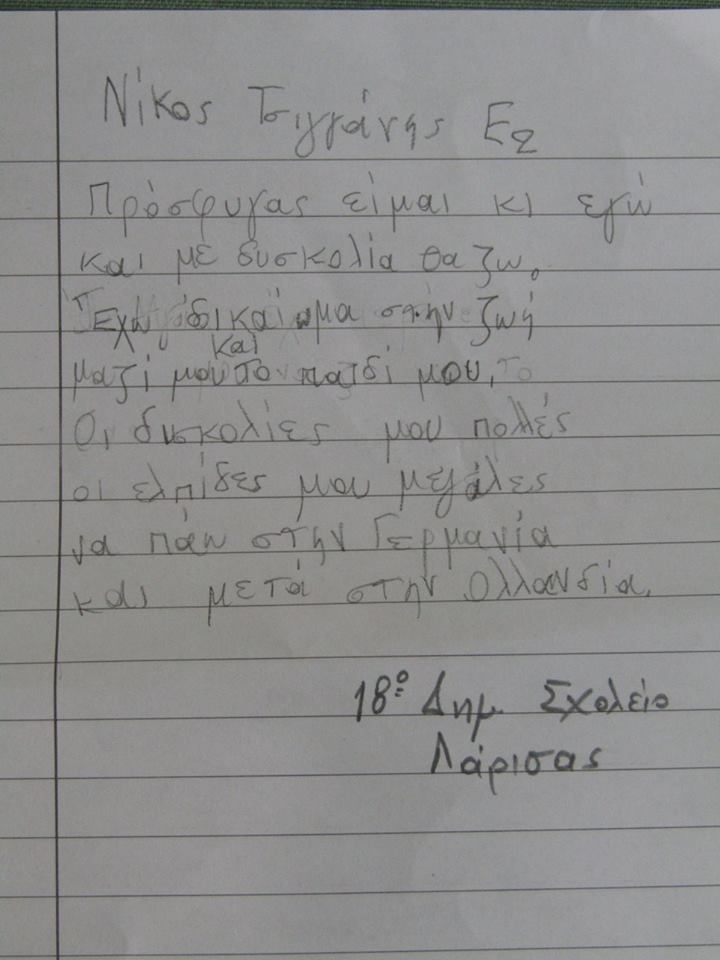 Νίκος Τσιγγάνης Ε2
Πρόσφυγας είμαι κι εγώ
και με δυσκολία θα ζω.
Έχω δικαίωμα στην ζωή
και
μαζί μου το παιδί μου,
Οι δυσκολίες μου πολλές
οι ελπίδες μου μεγάλες
να πάω στην Γερμανία
και μετά στην Ολλανδία.
18ο Δημ Σχολείο
Λάρισας